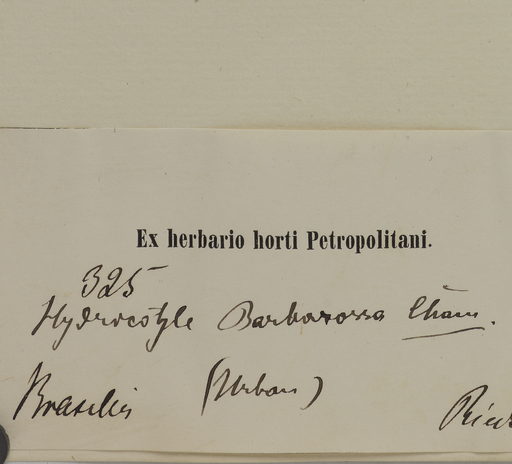 Ex herbario horti Petropolitani.
325
Hydrocotyle Barbarossa Cham.
Brasilia (Urban)